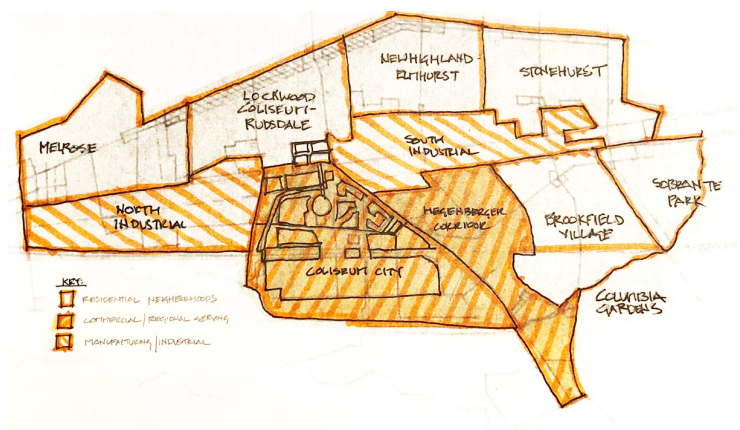 MELROSE
LOCKWOOD
COLISEUM-
RUDSDALE
NEW HIGHLAND-
ELMHURST
STONEHURST
SOUTH
INDUSTRIAL
NORTH
INDUSTRIAL
HEGENBERGER
CORRIDOR
BROOKFIELD
VILLAGE
SOBRANTE
PARK
COLISEUM CITY
COLUMBIA
GARDENS
KEY:
RESIDENTIAL NEIGHBORHOODS
COMMERCIAL/REGIONAL SERVING
MANUFACTURING/INDUSTRIAL